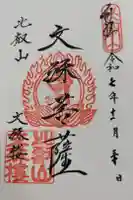 奉拝
令和七年十二月 日
文殊菩薩
比叡山
文殊楼